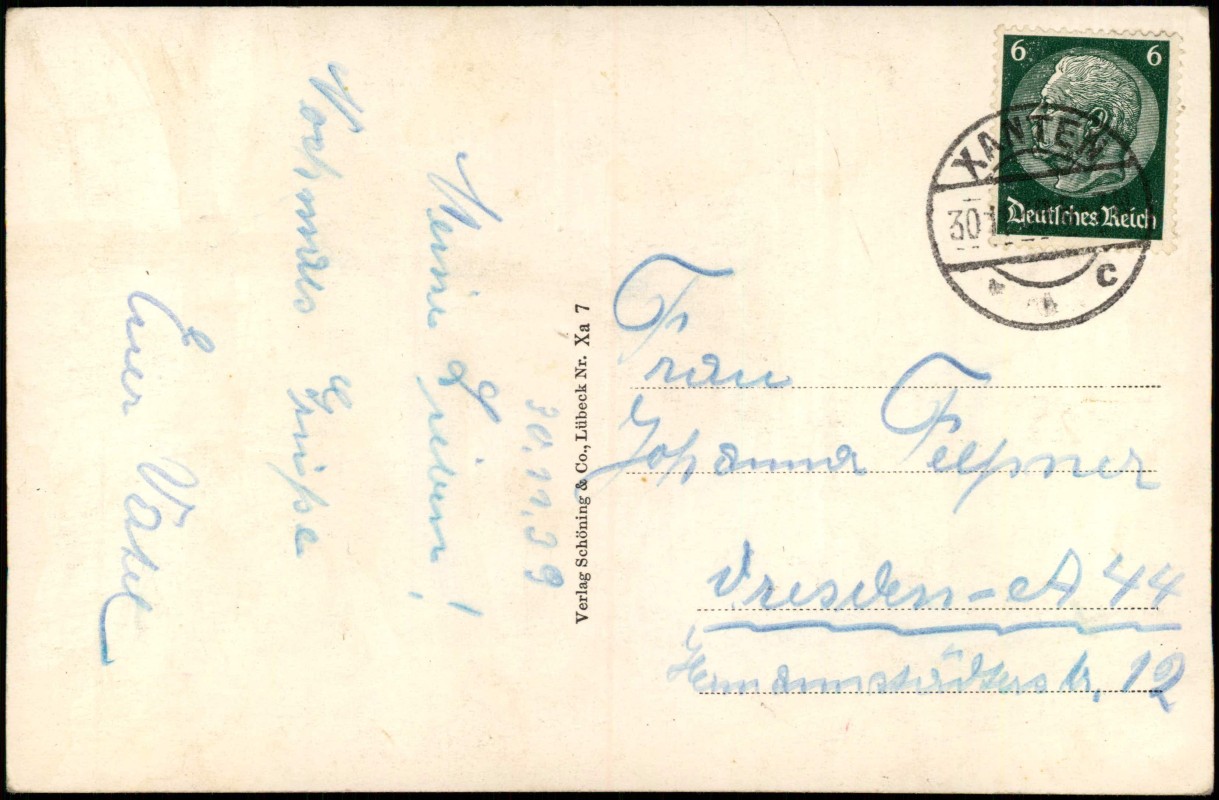 30.11.39
Meine Lieben!
Nochmals Grüße
Euer Vater
Verlag Schöning & Co., Lübeck Nr. Xa 7
6 6
Deutsches Reich
XANTEN
30.1
c
Frau
Johanna Felßner
Dresden-A 44
Hermannstädterstr. 12